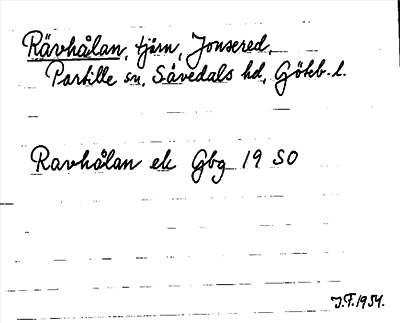 Rävhålan, tjärn, Jonsered,
Partille sn, Sävedals hd, Göteb. l.
Ravhålan ek Gbg 19 SO
J.F. 1954.